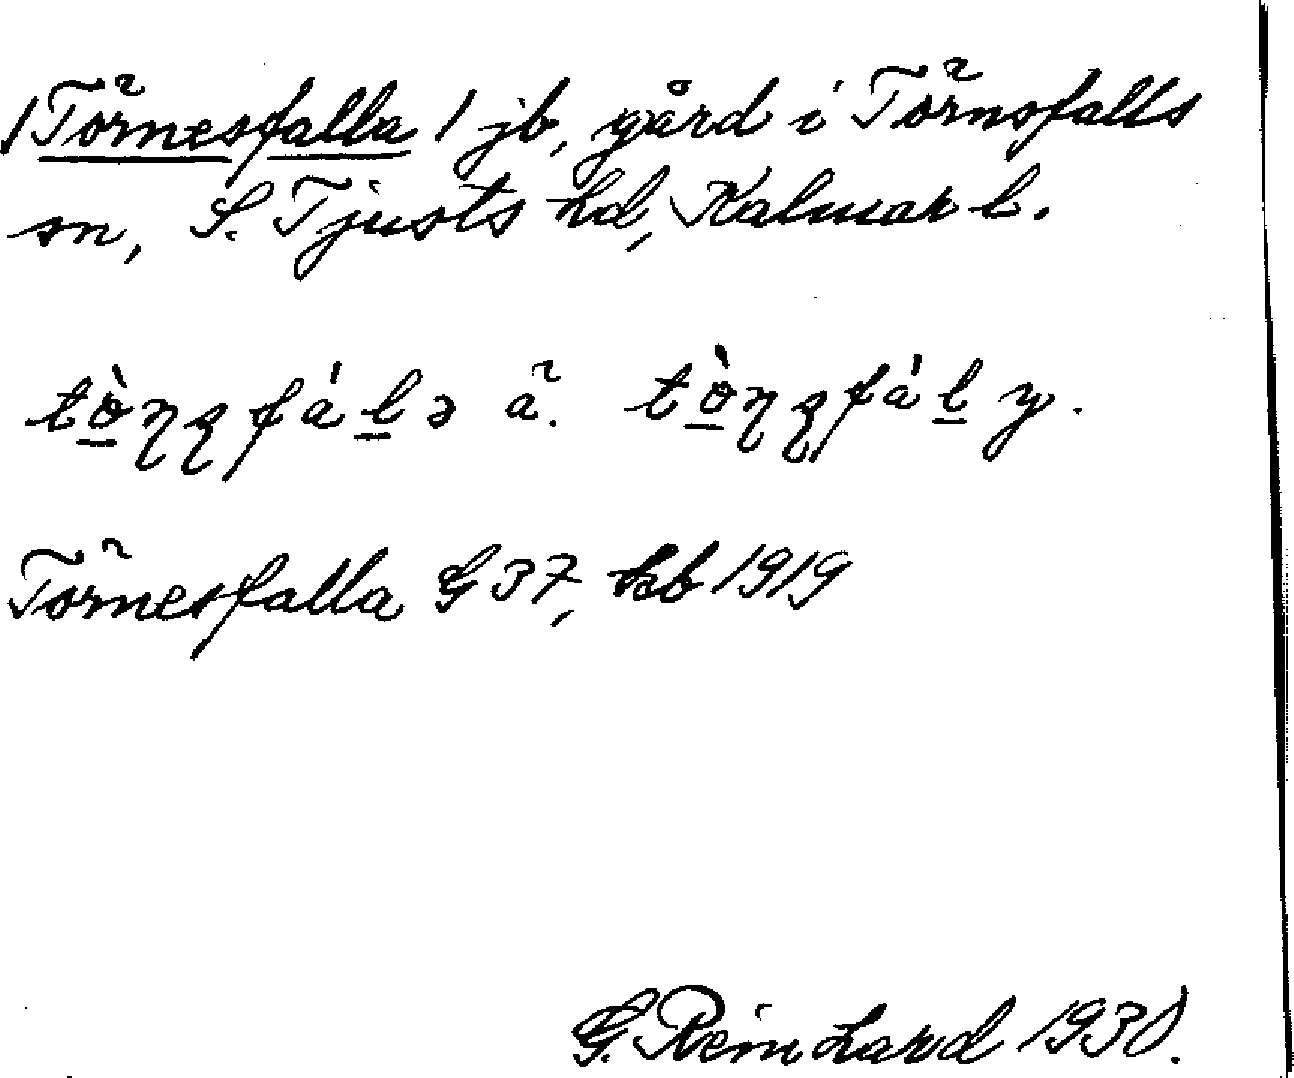 /Törnesfalla/ jb, gård i Törnsfalls
sn, S. Tjusts hd, Kalmar l.
tö̀ɳʂfáḷə ä. tö̀ɳʂfáḷ y.
Törnesfalla G 37, kb 1919
G. Reinhard 1930.